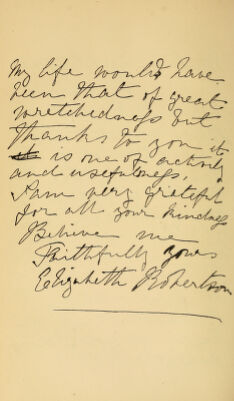 My life would have
been that of great
wretchedness but
thanks to you it
is one of activity
and usefulness.
I am very grateful
for all your kindness
Believe me
Faithfully yours
Elizabeth Robertson